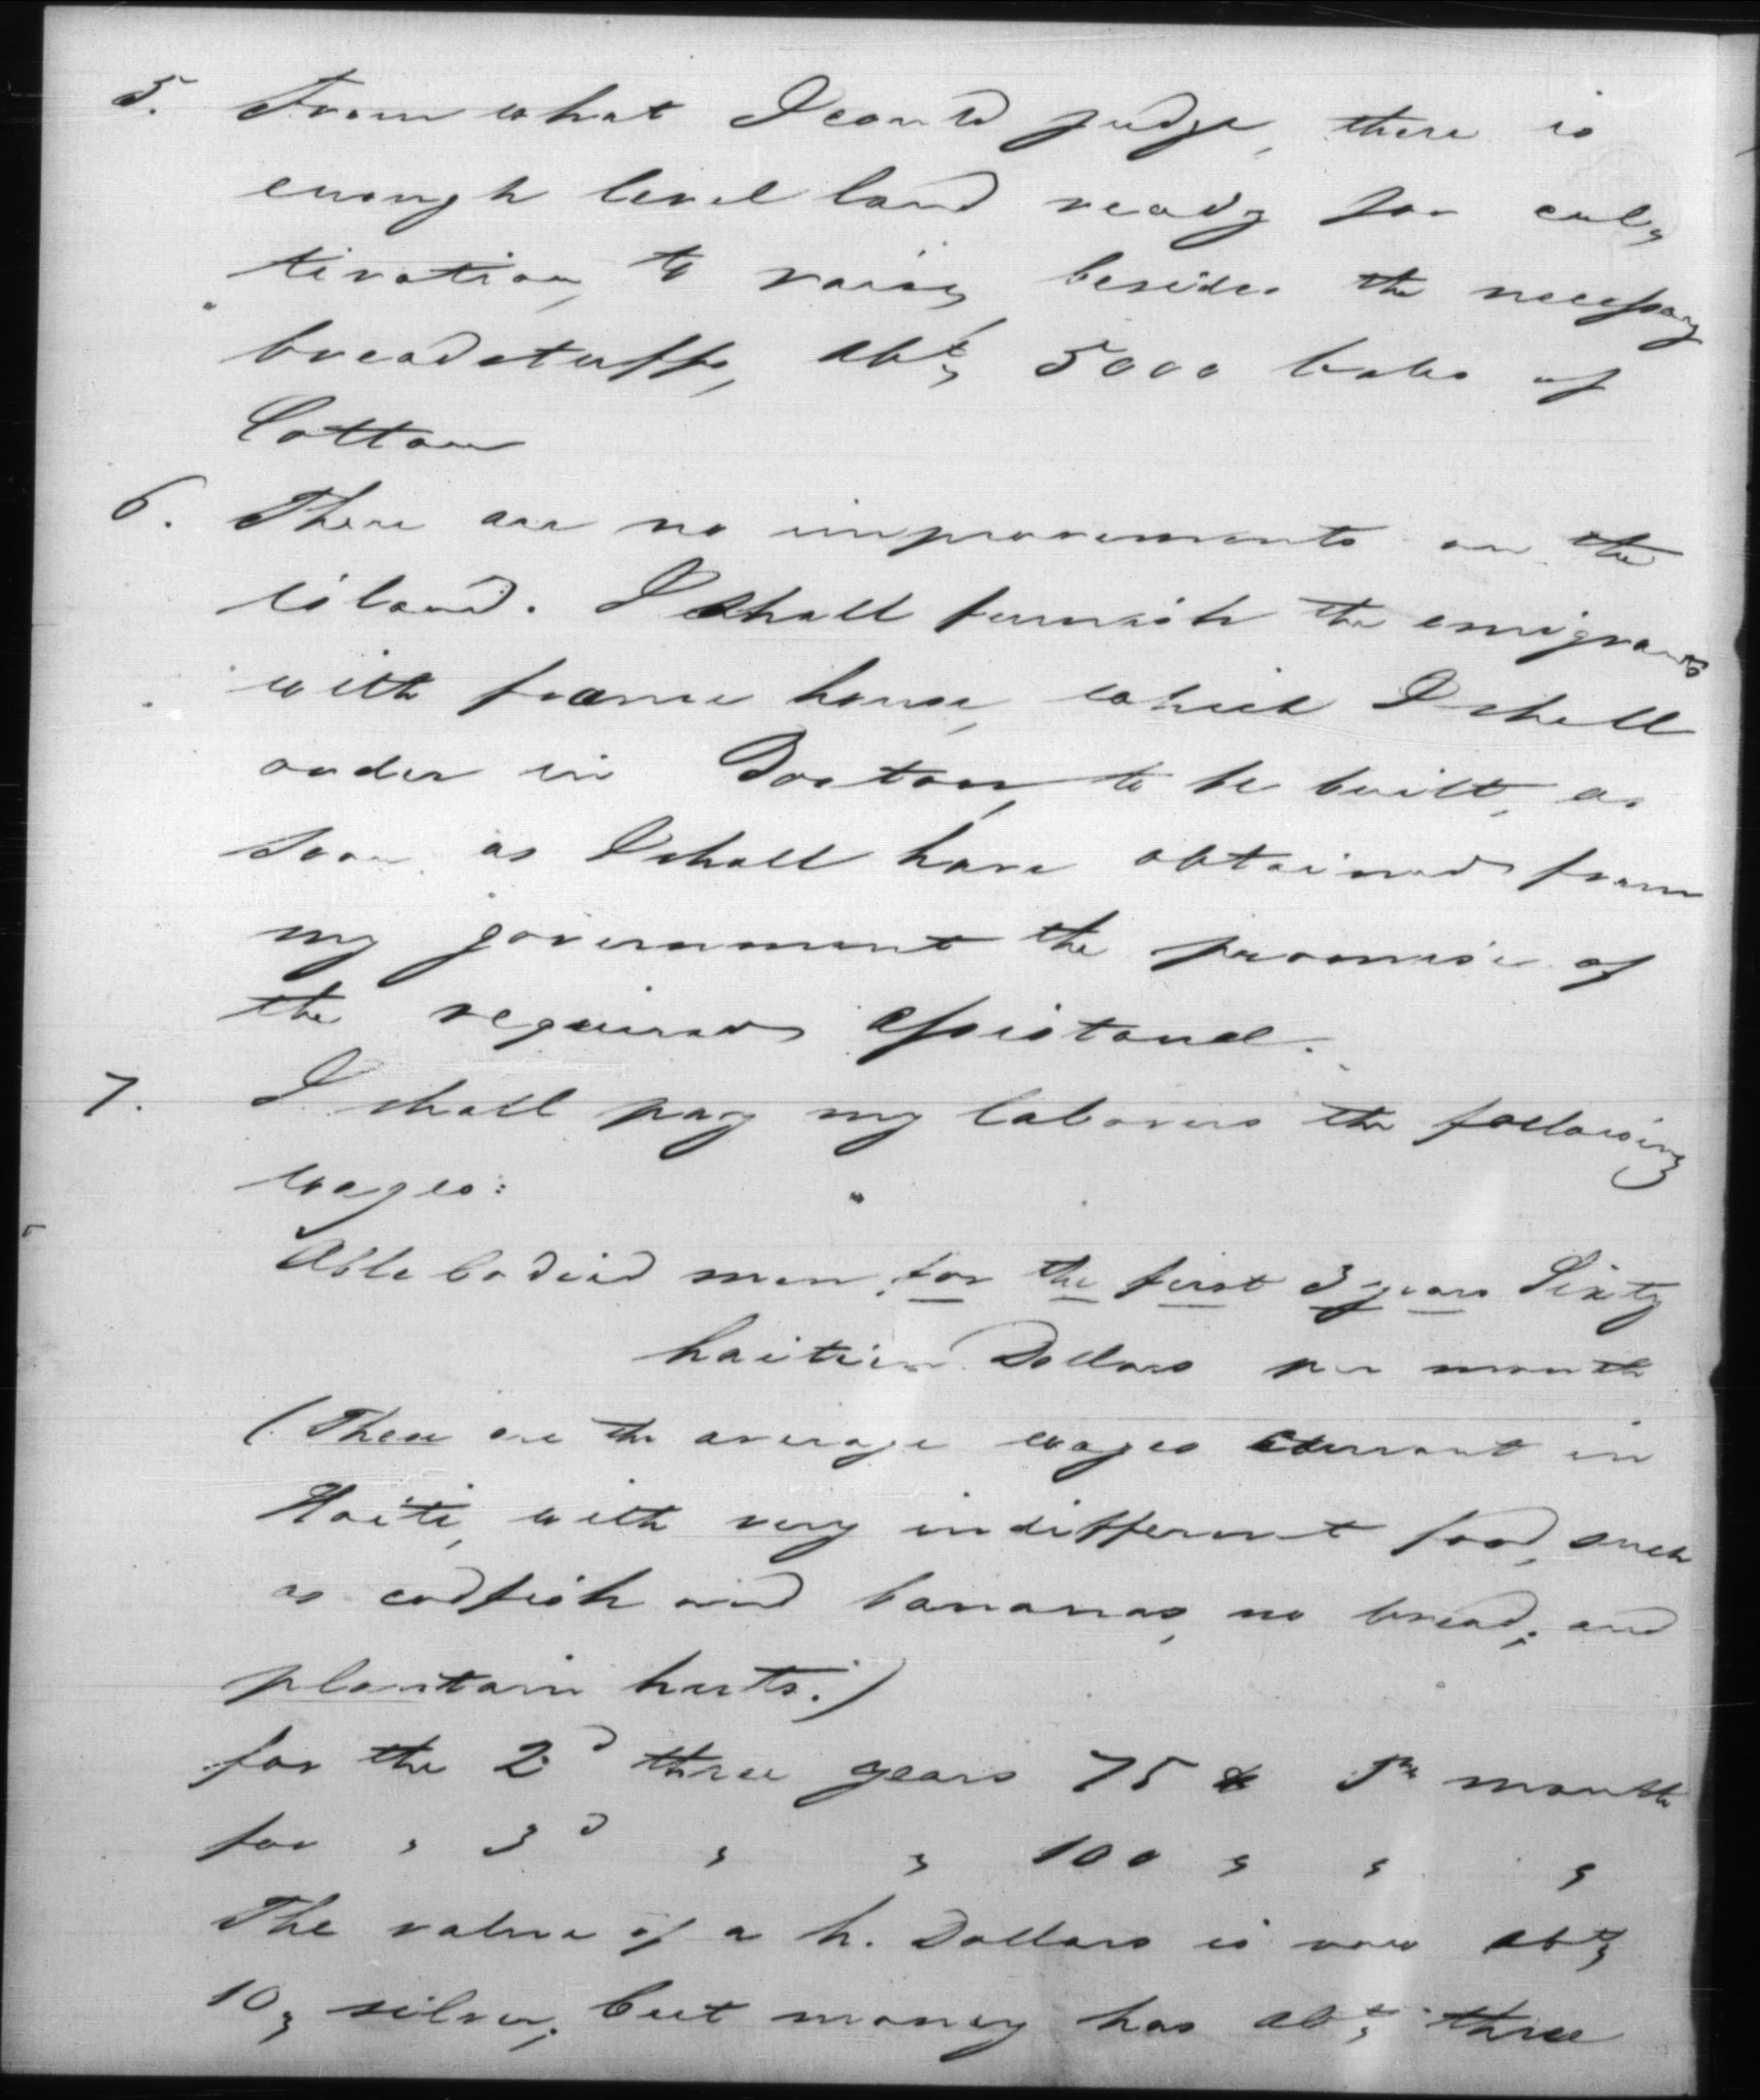 5. From what I could judge, there is
enough level land ready for cul,
tivation, to raise, besides the necessary
breadstuffs, abt, 5000 bales of
Cotton
6. There are no improvements on the
island. I shall furnish the emigrants
with frame house, which I shall
order in Boston, to be built, as
soon as I shall have obtained from
my government the promise of
the required assistance.
7. I shall pay my laborers the following
wages:
Able bodied men for the first 3 years Sixty
haitien Dollars per month
(These are the average wages current in
Haiti, with very indifferent food, such
as codfish and bananas, no bread; and
plantain huts.)
for the 2d three years 75 $ pr month
for " 3d " " 100 " " "
The value of a h. Dollars is now abt,
10, silver; but money has abt, three